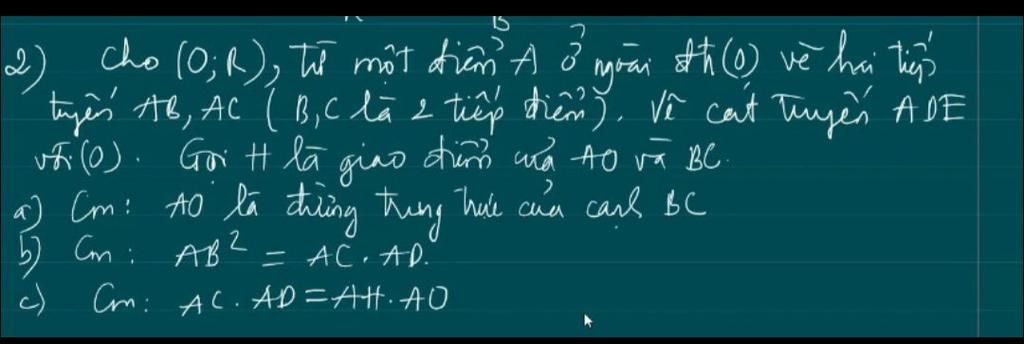 2) Cho (O;R), từ một điểm A ở ngoài đth (O) vẽ hai tiếp
tuyến AB, AC (B,C là 2 tiếp điểm). Vẽ cát tuyến ADE
với (O). Gọi H là giao điểm của AO và BC.
a) Cm: AO là đường trung trực của cạnh BC
b) Cm: AB² = AC.AD.
c) Cm: AC.AD = AH.AO